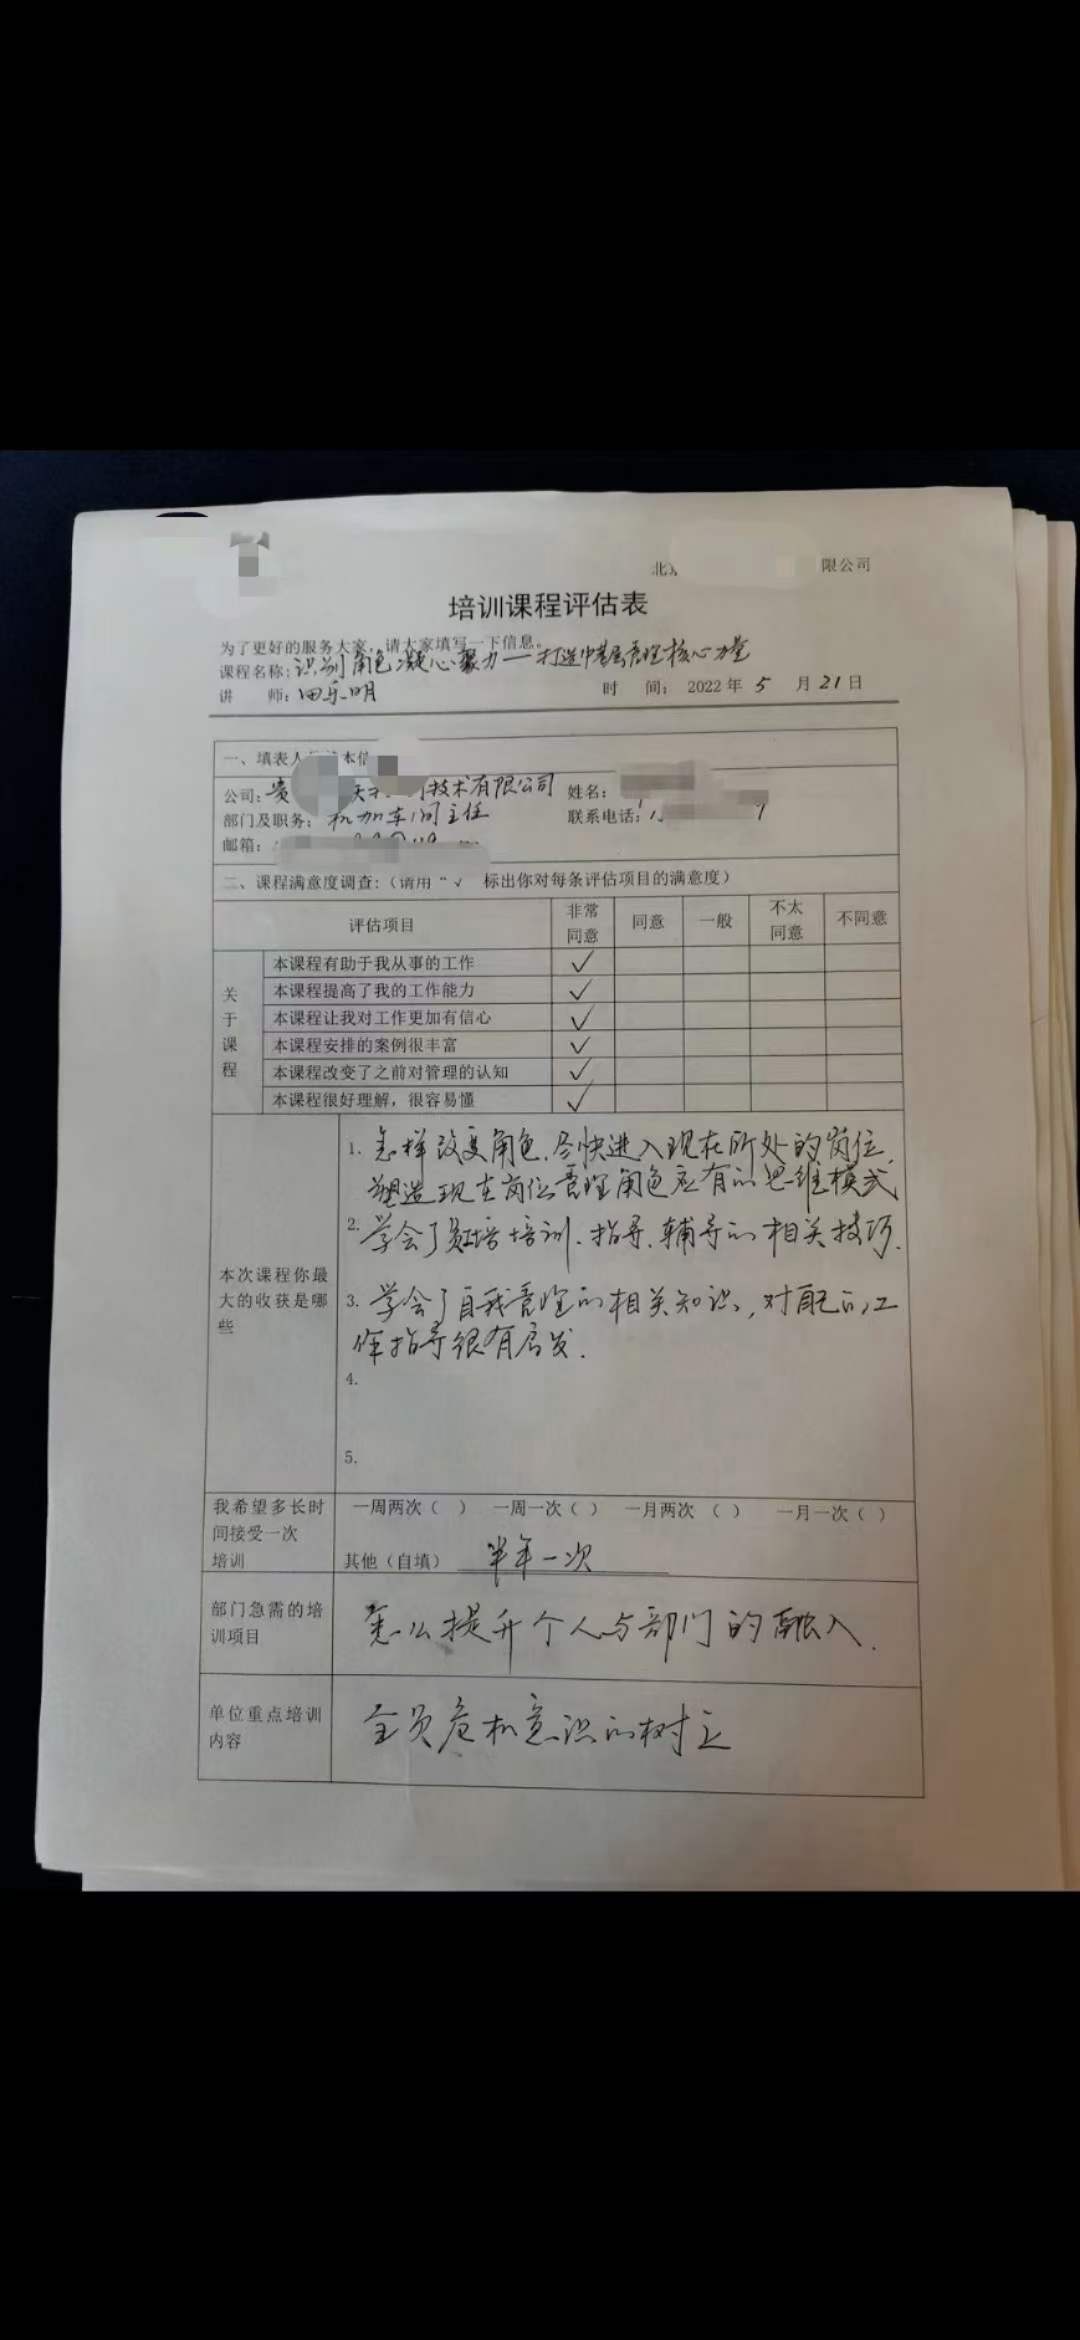 限公司
培训课程评估表
为了更好的服务大家,请大家填写一下信息。
课程名称:识别角色凝心聚力——打造中基层管理核心力量
讲 师:田乐明 时 间: 2022年 5 月 21 日
一、填表人 本信
公司:贵 技术有限公司 姓名:
部门及职务: 机加车间主任 联系电话:
邮箱:
二、课程满意度调查:(请用“√ 标出你对每条评估项目的满意度)
评估项目 非常同意 同意 一般 不太同意 不同意
关于课程
本课程有助于我从事的工作 ✓
本课程提高了我的工作能力 ✓
本课程让我对工作更加有信心 ✓
本课程安排的案例很丰富 ✓
本课程改变了之前对管理的认知 ✓
本课程很好理解,很容易懂 ✓
本次课程你最大的收获是哪些
1. 怎样改变角色,尽快进入现在所处的岗位,
塑造现在岗位管理角色应有的思维模式
2. 学会了 培训、指导、辅导的相关技巧.
3. 学会了自我管理的相关知识,对自己的工
作指导很有启发.
4.
5.
我希望多长时间接受一次培训
一周两次( ) 一周一次( ) 一月两次 ( ) 一月一次( )
其他(自填) 半年一次
部门急需的培训项目
怎么提升个人与部门的融入.
单位重点培训内容
全员危机意识的树立